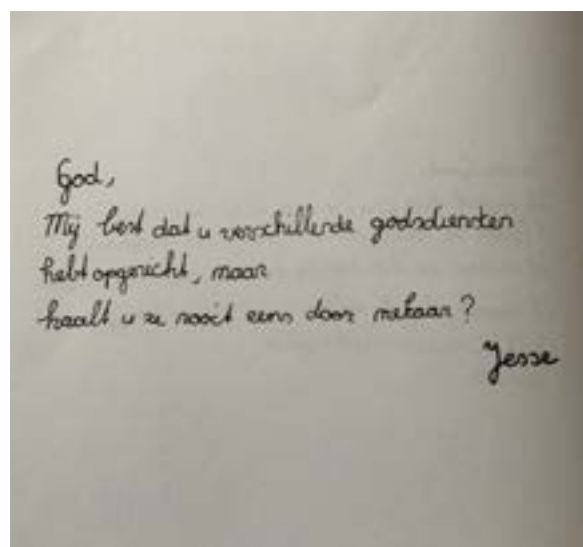 God,
Mij best dat u verschillende godsdiensten
hebt opgericht, maar
haalt u ze nooit eens door mekaar?
Jesse